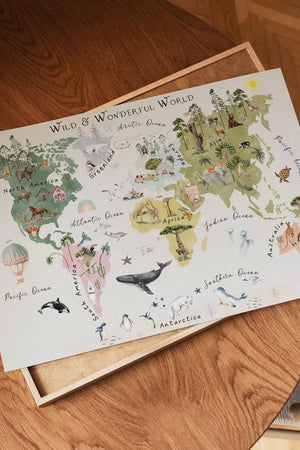 Wild & Wonderful World
Arctic Ocean
Greenland
North America
Asia
Pacific Ocean
Atlantic Ocean
Africa
Indian Ocean
Australia
Pacific Ocean
South America
Southern Ocean
Antarctica